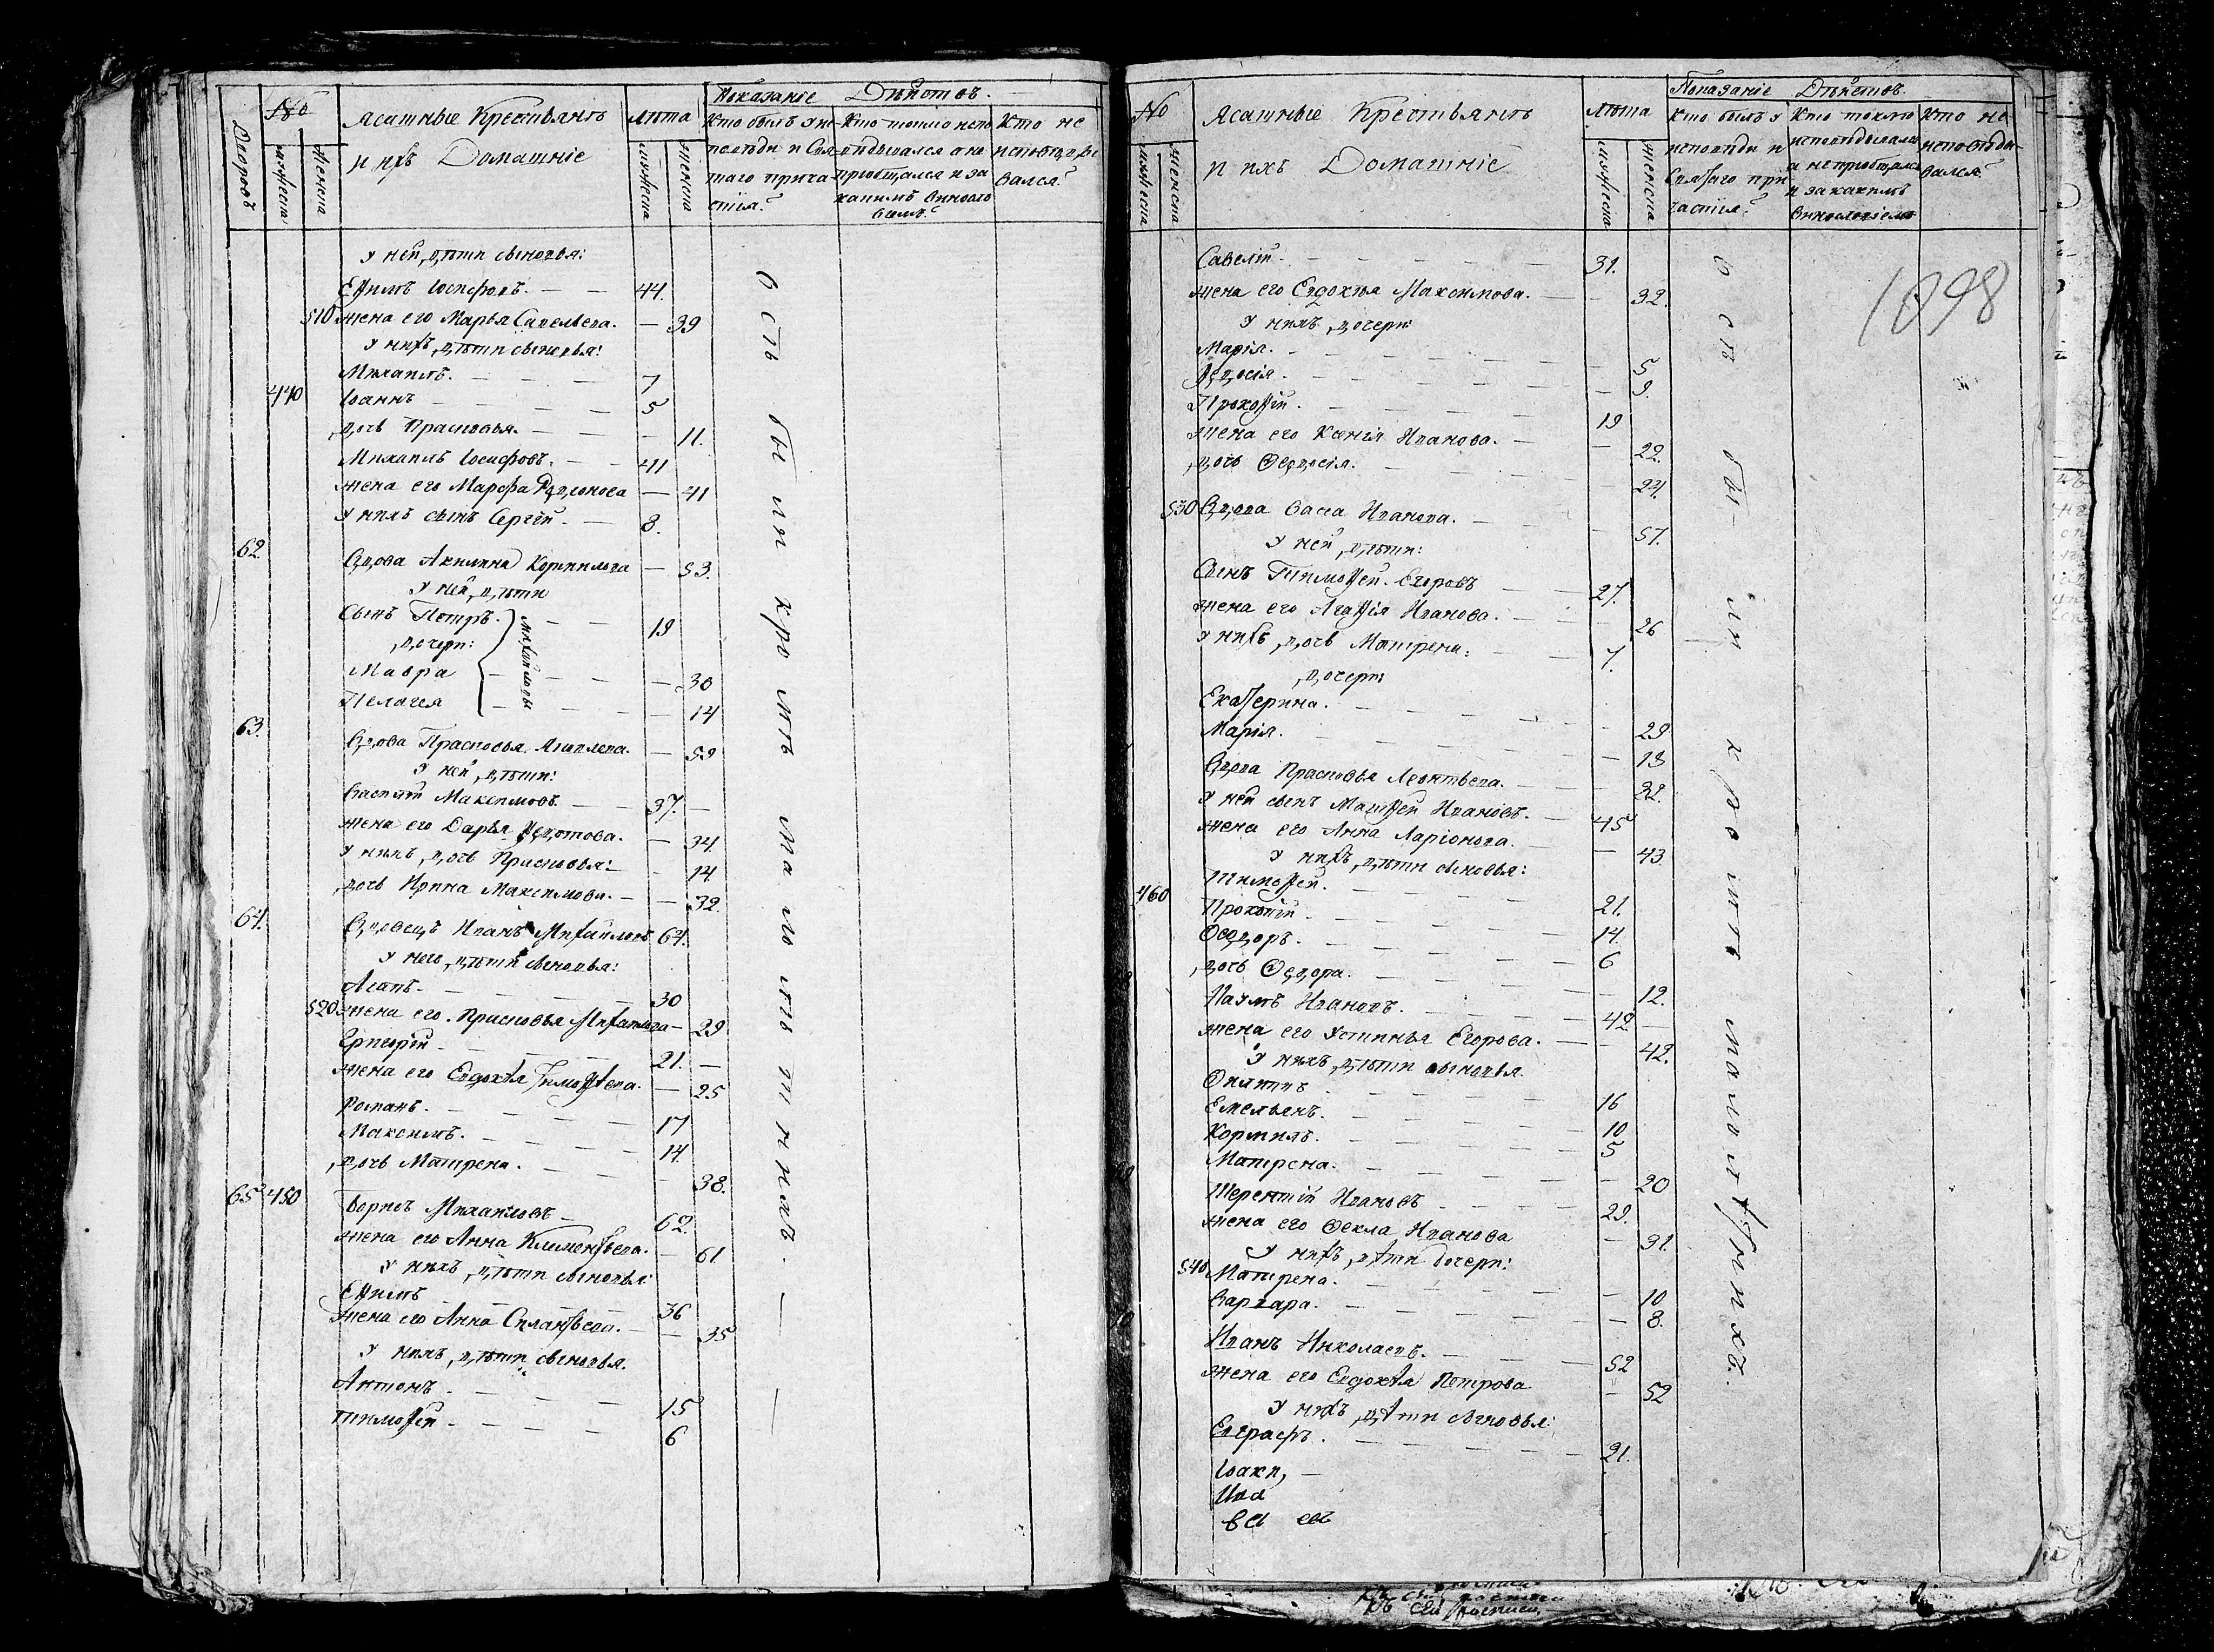 Дворовъ
№
мужеска
женска
Ясашные Крестьянъ
и ихъ Домашніе
лѣта
мужеска
женска
Показаніе Дѣйствъ.
Кто былъ у исповѣди и Святаго причастія?
Кто токмо исповѣдывался а не пріобщался и за какимъ винословіемъ?
Кто не исповѣдывался?
у ней дѣти сыновья:
Ефимъ Іосифовъ. 44.
510 жена его Марья Савельева. 39
у нихъ дѣти сыновья:
Михаилъ. 7
440 Іоаннъ 5
дочь Прасковья. 11.
Михаилъ Іосифовъ. 41
жена его Марфа 41
у нихъ сынъ Сергій. 8.
62. Вдова Акилина Корнильева 53.
у ней дѣти
Сынъ Петръ. 19
дочери:
Мавра 30
Пелагея 14
Михайловы
63. Вдова Прасковья 59
у ней дѣти:
Василій Максимовъ. 37.
жена его Дарья Федотова. 34
у нихъ дочь Прасковья: 14
дочь Ирина Максимова. 32.
64. Вдовецъ Иванъ Михайловъ 64.
у него дѣти сыновья:
Агапъ 30
520 жена его Прасковья Михайлова 29
Григорій 21.
жена его Евдокѣя Тимофѣева. 25
Романъ. 17
Максимъ. 14
дочь Матрена. 38.
65 450 Борисъ Михаиловъ 62.
жена его Анна Климентьева. 61
у нихъ дѣти сыновья:
Ефимъ 36
жена его Анна Силантьева. 35
у нихъ дѣти сыновья.
Антонъ 15
тимофей 6
Всѣ были кромѣ малолѣтниковъ.
№
мужеска
женска
Ясашные Крестьянъ
и ихъ Домашніе
лѣта
мужеска
женска
Показаніе Дѣйствъ.
Кто былъ у исповѣди и Святаго причастія?
Кто токмо исповѣдывался а не пріобщался и за какимъ винословіемъ
Кто не исповѣдывался?
1098
Савелій. 31.
жена его Евдокѣя Максимова. 32.
у нихъ дочери:
Марія. 5
Федосія. 9.
Прокофій. 19
жена его Ксенія Иванова. 22.
дочь Ѳедосія. 24.
530 Вдова Васса Иванова. 57.
у ней дѣти:
Сынъ Тимофей Егоровъ 27.
жена его Агафія Иванова. 26
у нихъ дочь Матрена: 7.
дочери:
Екатерина. 29
Марія. 13
Вдова Прасковья Леонтьева. 82.
у ней сынъ Матфей Ивановъ. 45
жена его Анна Ларіонова. 43
у нихъ дѣти сыновья:
460 Тимофей. 21.
Прокопій 14.
Ѳедоръ. 6
дочь Ѳедора. 12.
Наумъ Ивановъ. 42
жена его Устинья Егорова. 42.
у нихъ дѣти сыновья.
16
Емельянъ. 10
Корнилъ. 5
Матрена. 20
Терентій Ивановъ 29.
жена его Ѳекла Иванова 31.
у нихъ дѣти дочери:
540 Матрена. 10
Варвара. 8.
Иванъ Николаевъ. 52
жена его Евдокѣя Петрова 52
у нихъ дѣти сыновья:
Евграфъ. 21.
Всѣ были кромѣ малолѣтнихъ.